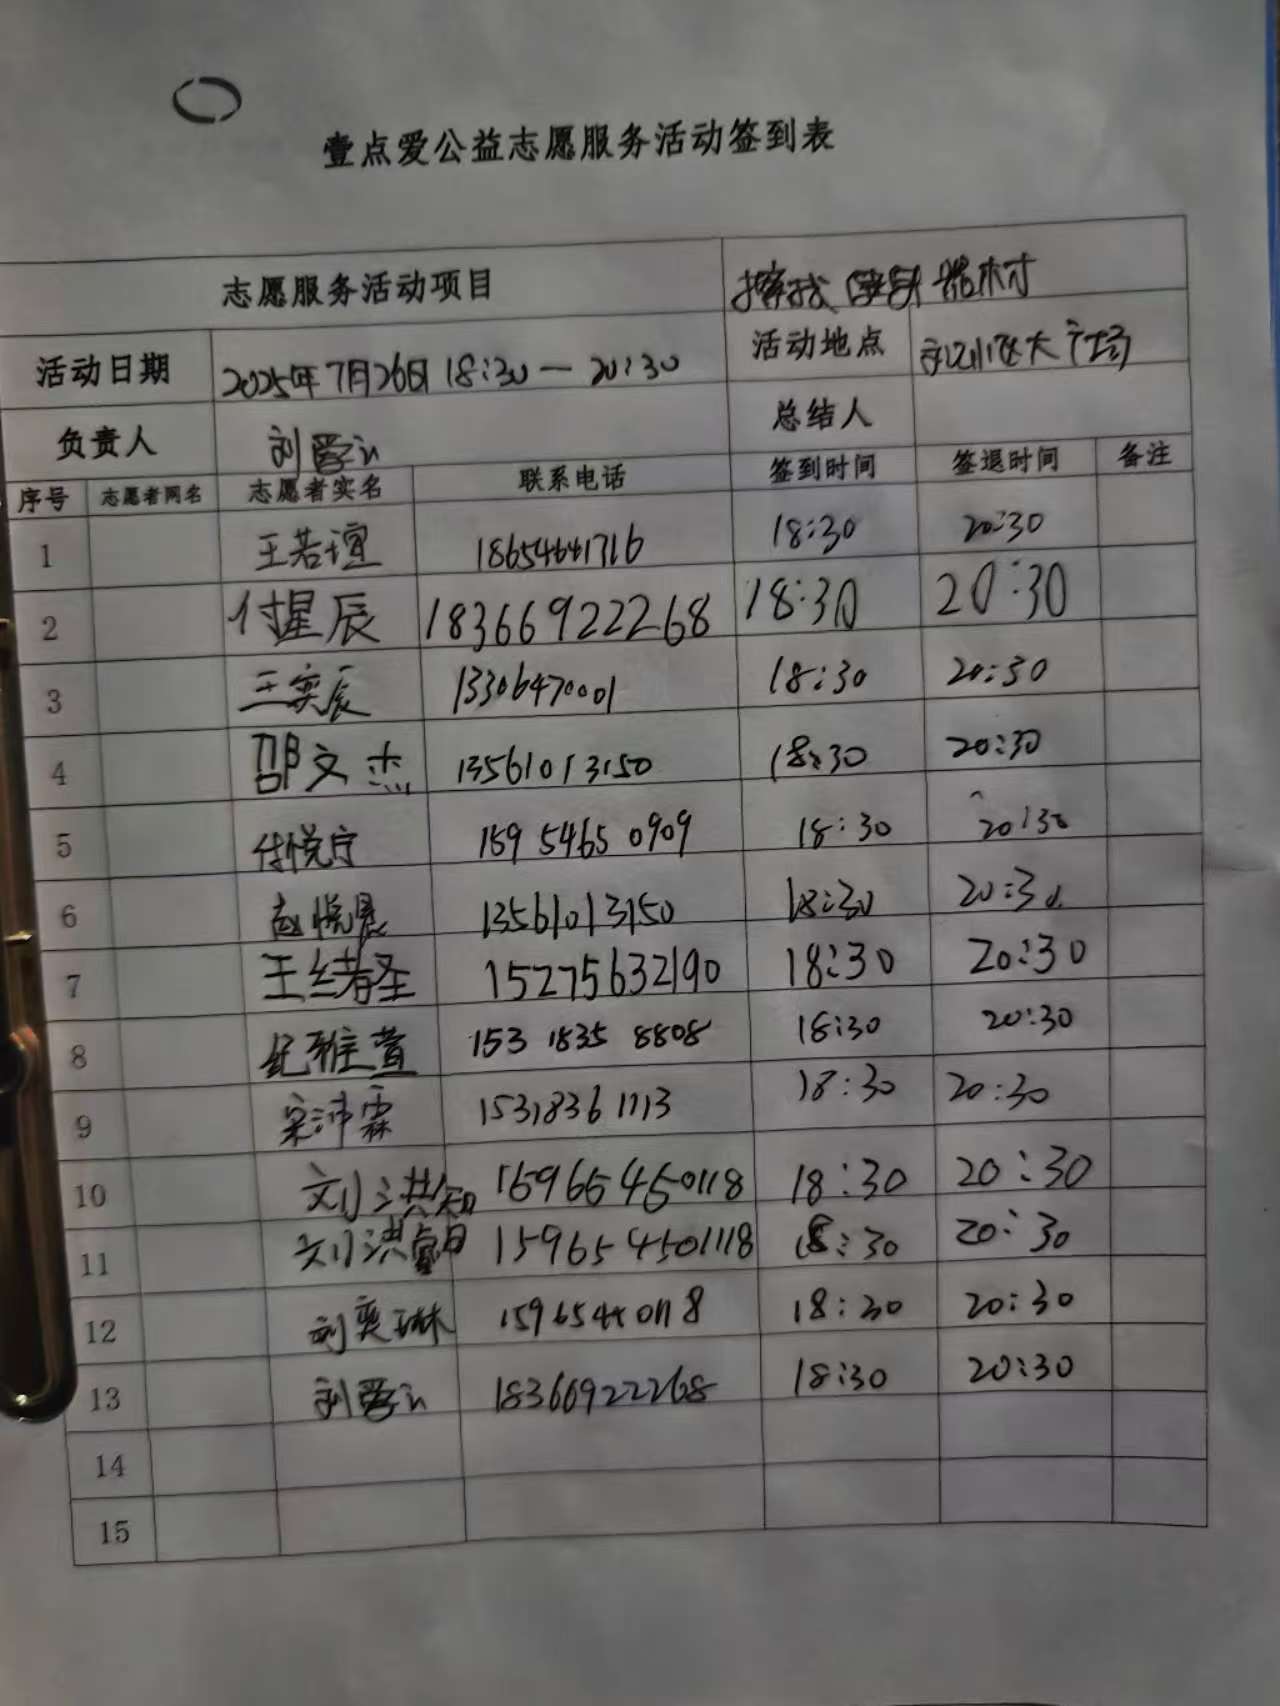 壹点爱公益志愿服务活动签到表
志愿服务活动项目 器材
活动日期 2025年7月26日 18:30—20:30 活动地点 大广场
负责人 刘 总结人
序号 志愿者网名 志愿者实名 联系电话 签到时间 签退时间 备注
1 王若谊 18654641716 18:30 20:30
2 付星辰 18366922268 18:30 20:30
3 王奕辰 13306470001 18:30 20:30
4 邵文杰 13561013150 18:30 20:30
5 付悦宁 159 5465 0909 18:30 20:30
6 赵悦晨 13561013150 18:30 20:30
7 王绪圣 15275632190 18:30 20:30
8 纪雅萱 153 1835 8808 18:30 20:30
9 宋沛霖 15318361113 18:30 20:30
10 刘洪知 15965450118 18:30 20:30
11 刘洪 18:30 20:30
12 刘奕琳 18:30 20:30
13 刘 18366922268 18:30 20:30
14
15